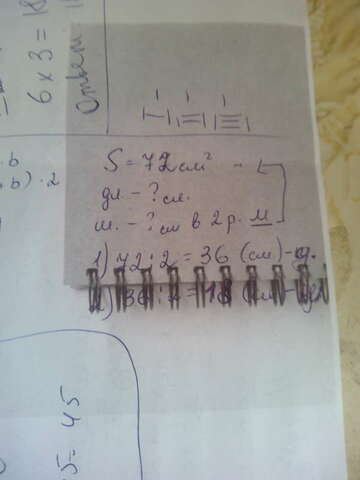 6 x 3 = 18
Ответ
· b
b) · 2
S = 72 см²
дл. - ? см.
ш. - ? см в 2 р. м
1) 72 : 2 = 36 (см) -
2) 36 : 2 = 18 (см -
5 = 45